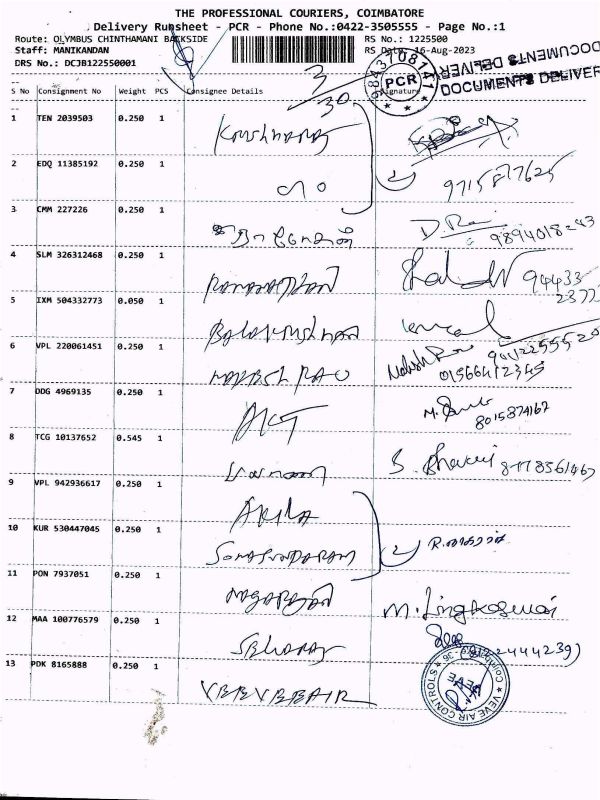 THE PROFESSIONAL COURIERS, COIMBATORE
Delivery Runsheet - PCR - Phone No.:0422-3505555 - Page No.:1
Route: OLYMBUS CHINTHAMANI BACKSIDE RS No.: 1225500
Staff: MANIKANDAN RS Date: 16-Aug-2023
DRS No.: DCJB122550001
DOCUMENTS DELIVERY
DOCUMENTS DELIVER
9843108141
PCR
3
30
S No Consignment No Weight PCS Consignee Details Signature
1 TEN 2039503 0.250 1
2 EDQ 11385192 0.250 1
9715877625
3 CMM 227226 0.250 1
D. Ra
4 SLM 326312468 0.250 1
94433
5 IXM 504332773 0.050 1 Balakrishnan
6 VPL 220061451 0.250 1 MAHESH RAO
7 DDG 4969135 0.250 1
8015874167
8 TCG 10137652 0.545 1
9 VPL 942936617 0.250 1 AKILA
10 KUR 530447045 0.250 1 Somasundaram
11 PON 7937051 0.250 1
12 MAA 100776579 0.250 1
13 PDK 8165888 0.250 1
VEVE AIR CONTROLS
VEVE